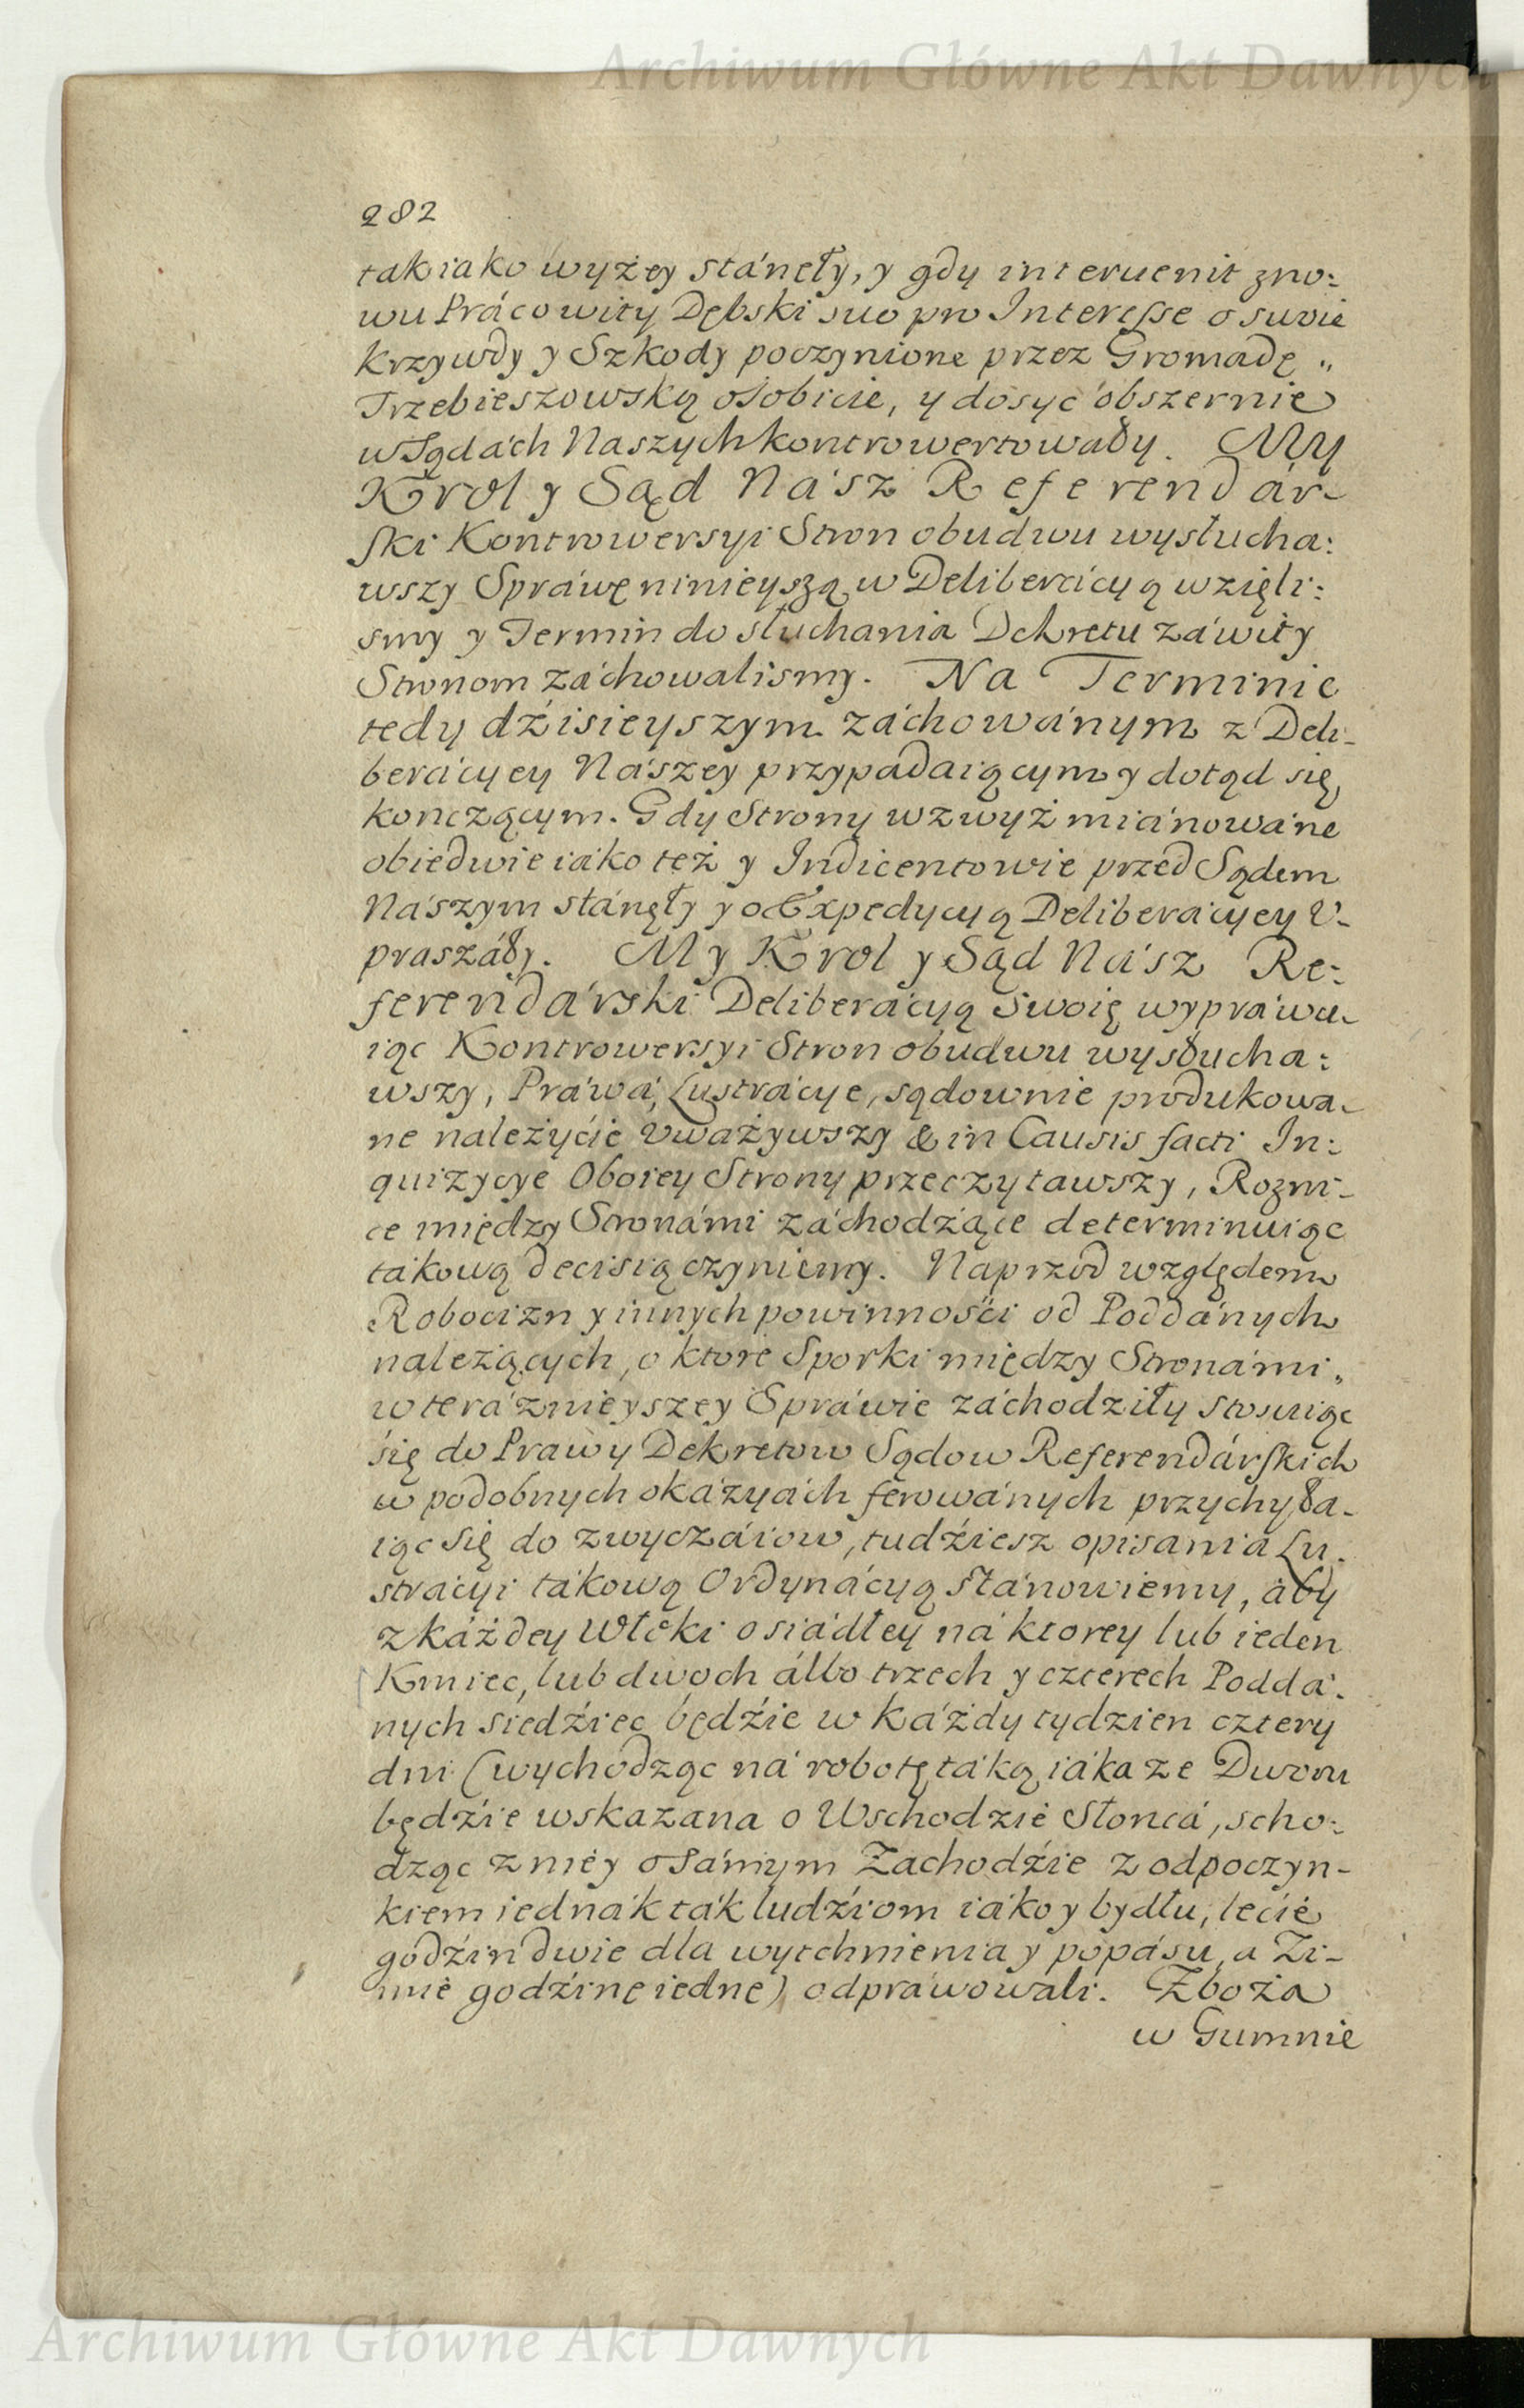 Archiwum Główne Akt Dawnych
282
tak iako wyżey stánęły, y gdy interuenit zno:
wu Prácowity Dębski suo pro Interesse o swoie
krzywdy y Szkody poczynione przez Gromadę „
Trzebieszowską osobicie, y dosyć obszernie
w Sądách Naszych kontrowertowały. My
Krol y Sąd Nász Referendár-
ski Kontrowersyi Stron obudwu wysłucha:
wszy Spráwę ninieyszą w Deliberácyą wzięli:
smy y Termin do słuchania Dekretu záwity
Stronom záchowalismy. Na Terminie
tedy dźisieyszym záchowánym z Deli-
berácyey Nászey przypadaiącym y dotąd się
konczącym. Gdy Strony wzwyż miánowáne
obiedwie iáko też y Indicentowie przed Sądem
Nászym stánęły y o Expedycyą Deliberácyey V-
praszáły. My Krol y Sąd Nász Re:
ferendárski Deliberácyą Swoię wypráwu-
iąc Kontrowersyi Stron obudwu wysłucha:
wszy, Práwá, Lustrácye, sądownie produkowa-
ne należyćie Vważywszy & in Causis facti In:
quizycye Oboiey Strony przeczytawszy, Rozni-
ce między Stronámi záchodźące determinuiąc
tákową decisią czyniemy. Naprzod względem
Robocizn y innych powinnośći od Poddánych
należących, o ktore Sporki między Stronámi „
w teráznieyszey Spráwie záchodziły stosuiąc
się do Praw y Dekretow Sądow Referendárskich
w podobnych okázyách ferowánych przychyla-
iąc się do zwyczáiow, tudźiesz opisania Lu-
strácyi tákową Ordynácyą stánowiemy, áby
z káżdey Włoki osiádłey ná ktorey lub ieden
Kmiec, lub dwoch álbo trzech y czterech Poddá-
nych siedźiec będźie w káżdy tydzien cztery
dni (wychodząc ná robotę táką iáka ze Dworu
będźie wskazana o Wschodzie Słoncá, scho-
dząc z niey o sámym Zachodźie z odpoczyn-
kiem iednák ták ludźiom iáko y bydłu, lećie
godźin dwie dla wytchnienia y popásu, a Zi-
mie godźinę iednę) odpráwowali. Zboża
w Gumnie
Archiwum Główne Akt Dawnych